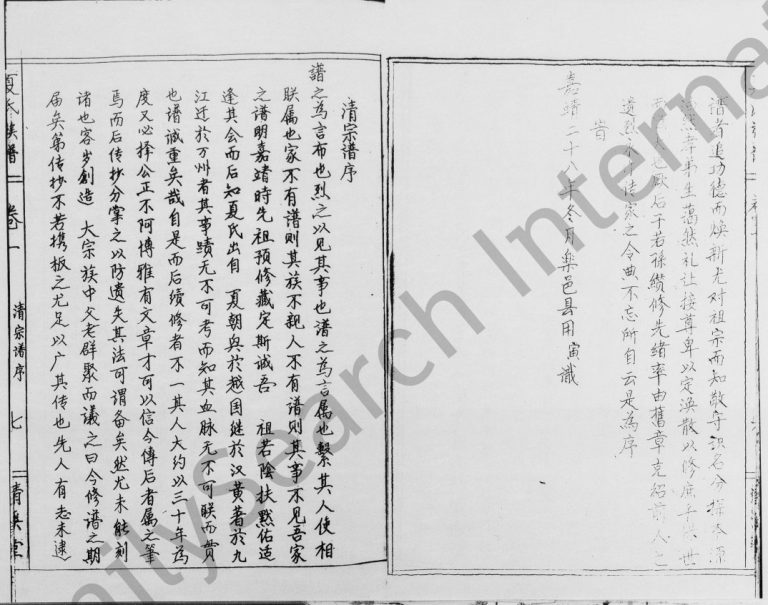 谱者追功德而焕新尤对祖宗而知敬守识名分探本源
孝弟生蔼然礼让接尊卑以定涣散以修庶乎后世
也欤后于若孫缵修先绪率由舊章克绍前人之
遗烈 传家之令典不忘所自云是為序
旹
嘉靖二十八年冬月楽邑县用寅識
清宗谱序
譜之為言布也烈之以见其事也谱之為言属也繫其人使相
联属也家不有谱则其族不親人不有谱则其事不见吾家
之谱明嘉靖時先祖预修藏定斯诚吾 祖若陰扶黙佑适
逢其会而后知夏氏出自 夏朝與於越国继於汉黄著於九
江迁於万州者其事蹟无不可考而知其血脉无不可联而贯
也谱诚重矣哉自是而后续修者不一其人大约以三十年為
度又必择公正不阿博雅有文章才可以信今傅后者属之筆
焉而后传抄分掌之以防遗失其法可谓备矣然尤未能刻
诸也容岁創造 大宗族中父老群聚而議之曰今修谱之期
届矣第传抄不若携板之尤足以广其传也先人有志未逮
夏氏族譜
卷一
清宗谱序
七
FamilySearch International